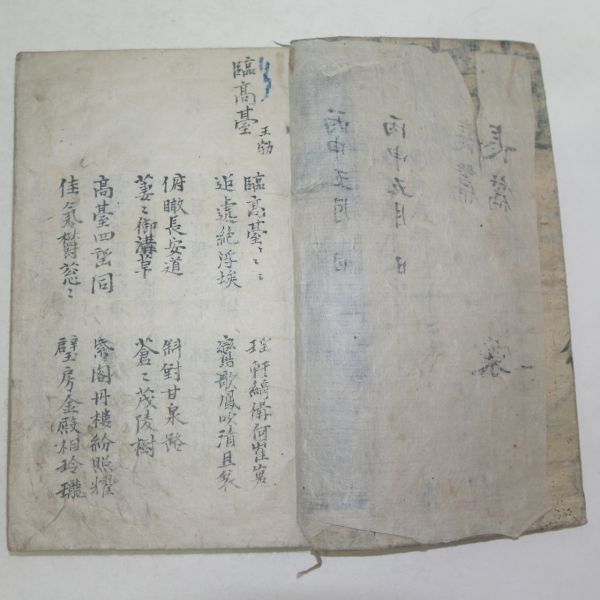 丙申五月 日
丙申五月 日
臨高臺 王勃
臨高臺〻〻
迢遞絶浮埃
瑤軒綺構何崔嵬
鸞歌鳳吹清且哀
俯瞰長安道
萋〻御溝草
斜對甘泉路
蒼〻茂陵樹
高臺四望同
佳氣欝葱〻
紫閣丹樓紛照耀
璧房金殿相玲瓏